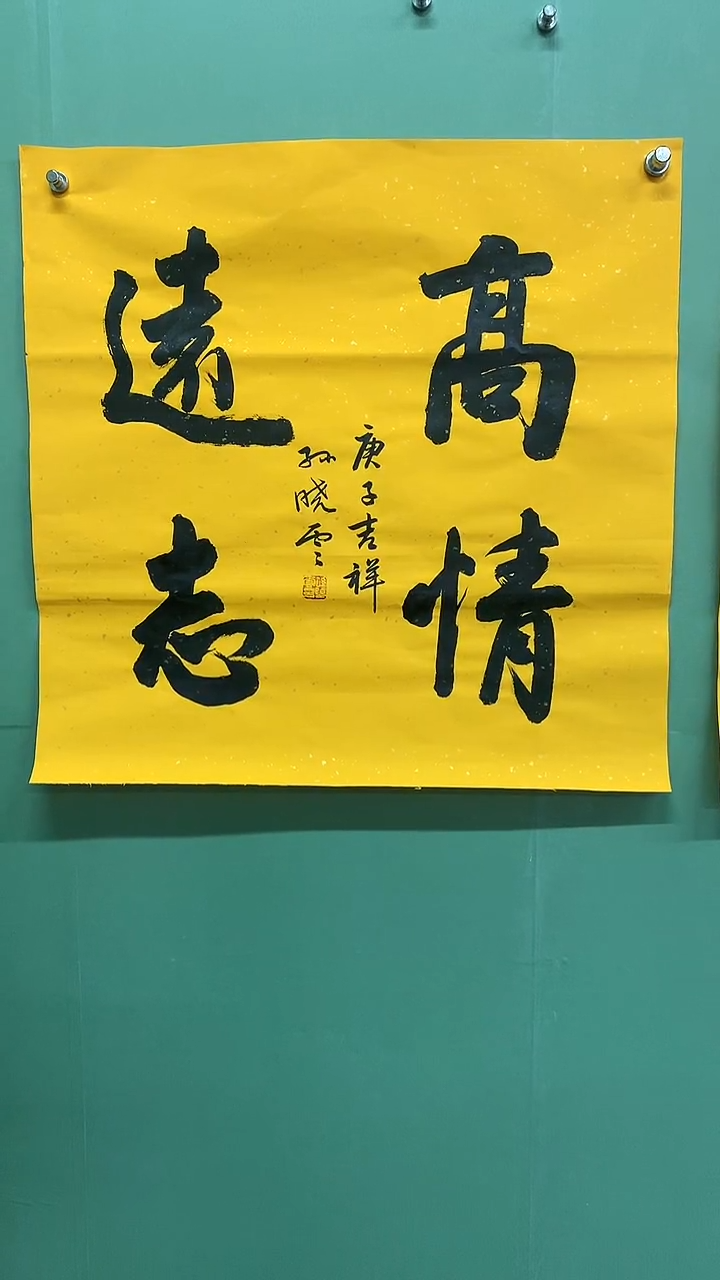 高情
遠志
庚子吉祥
孙晓雲